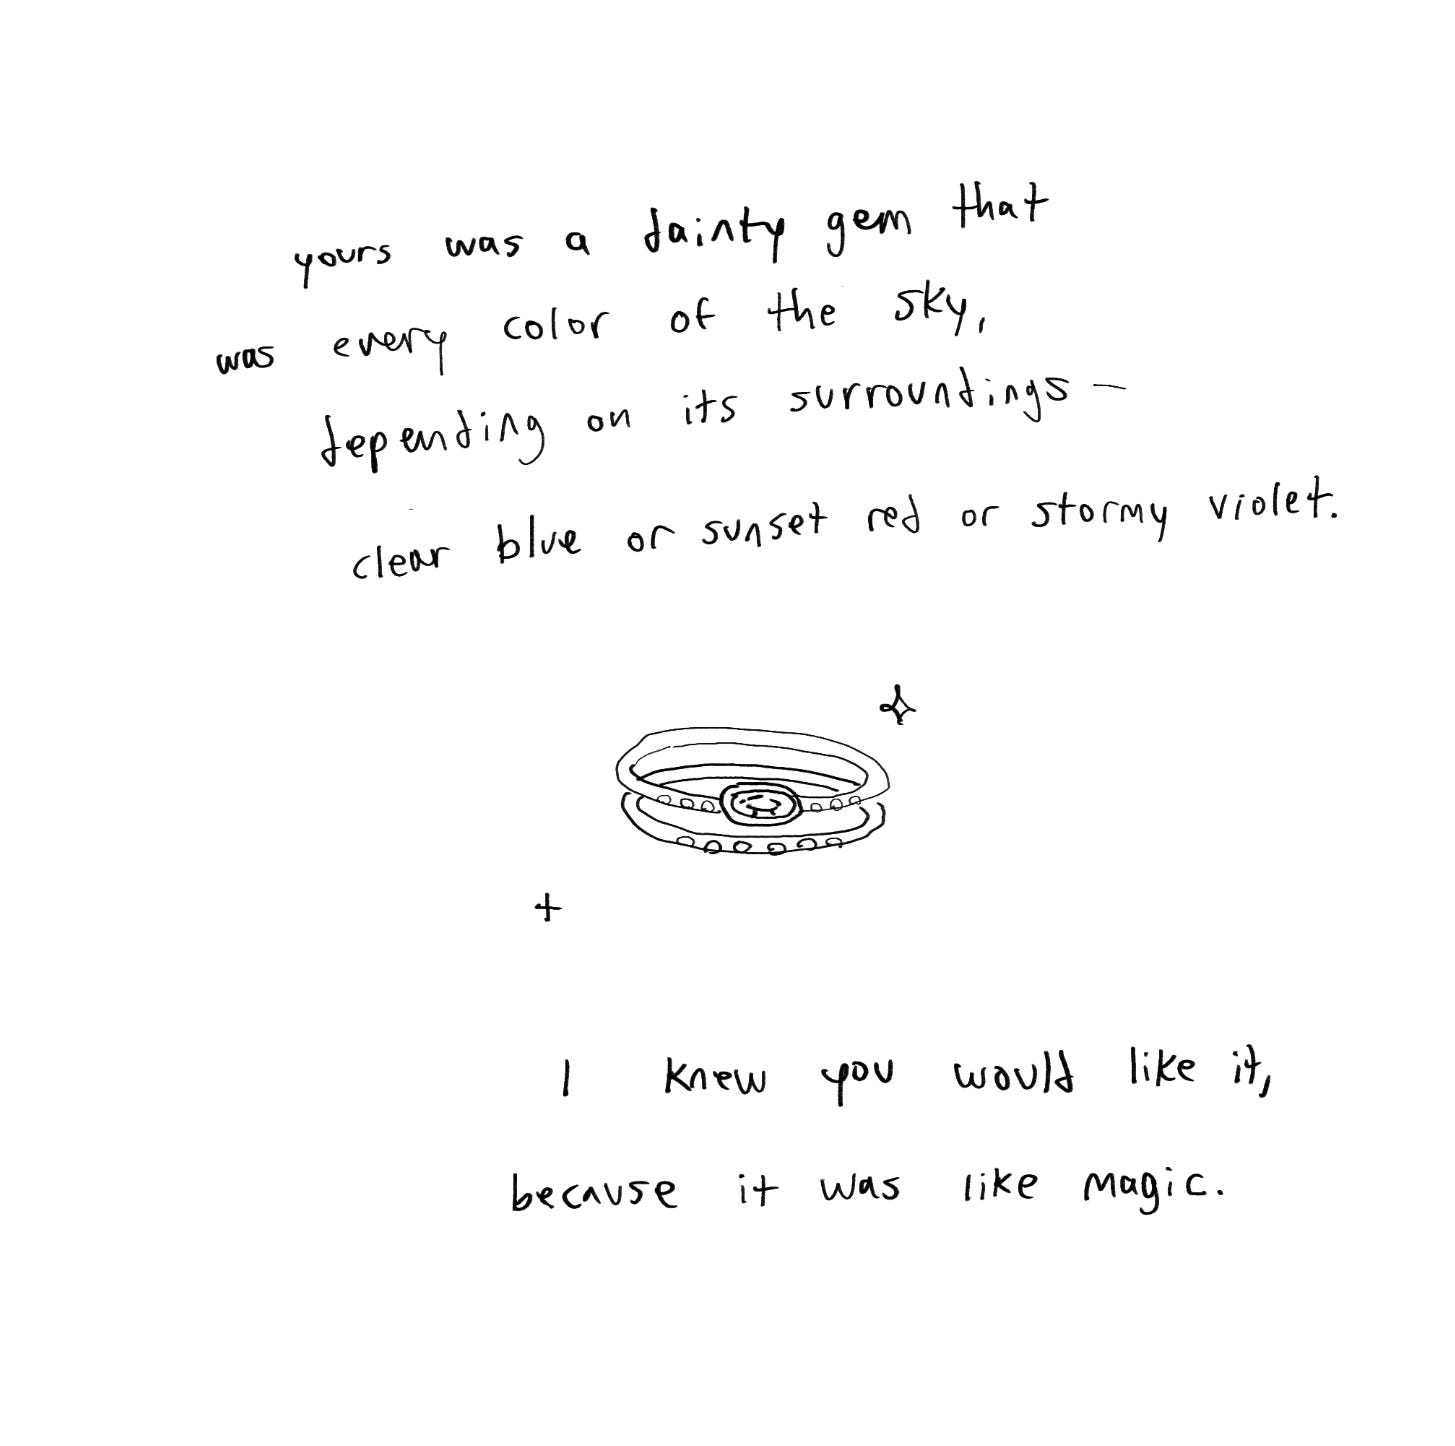 yours was a dainty gem that
was every color of the sky,
depending on its surroundings —
clear blue or sunset red or stormy violet.
I knew you would like it,
because it was like magic.